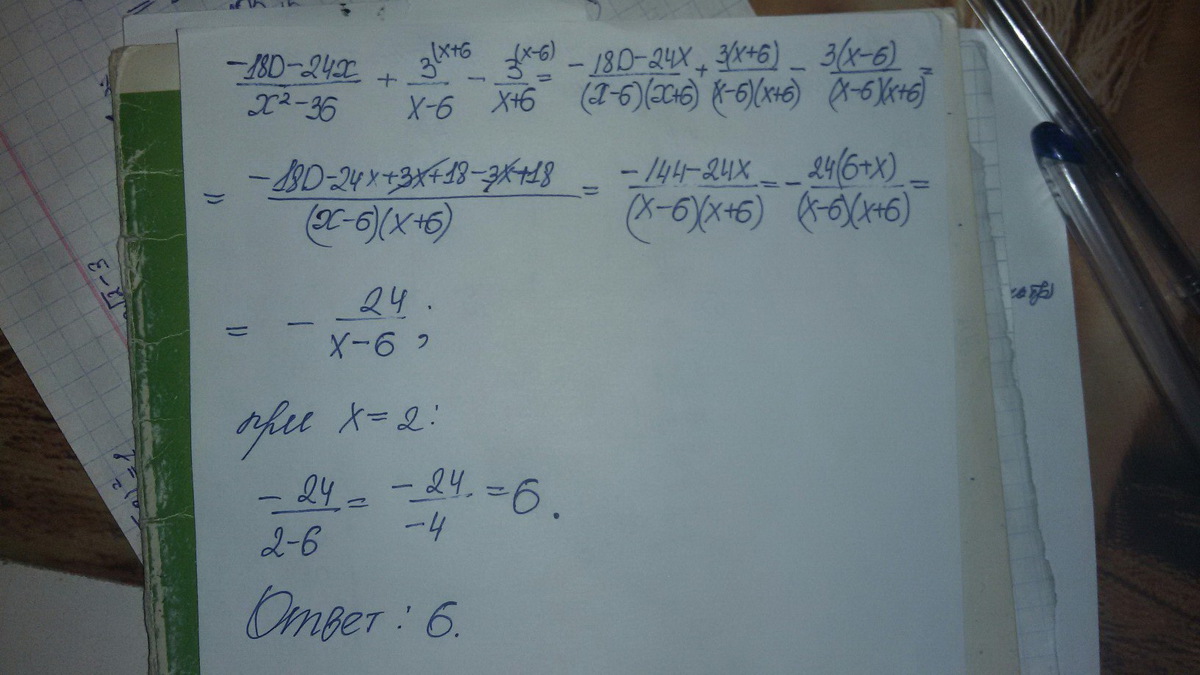 (-180-24x)/(x²-36) + 3^(x+6/(x-6) - 3^(x-6)/(x+6) = -(180-24x)/((x-6)(x+6)) + 3(x+6)/((x-6)(x+6)) - 3(x-6)/((x-6)(x+6)) =
= (-180-24x+3x+18-3x+18)/((x-6)(x+6)) = (-144-24x)/((x-6)(x+6)) = -24(6+x)/((x-6)(x+6)) =
= -24/(x-6);
при x=2:
-24/(2-6) = -24/-4 = 6.
Ответ: 6.